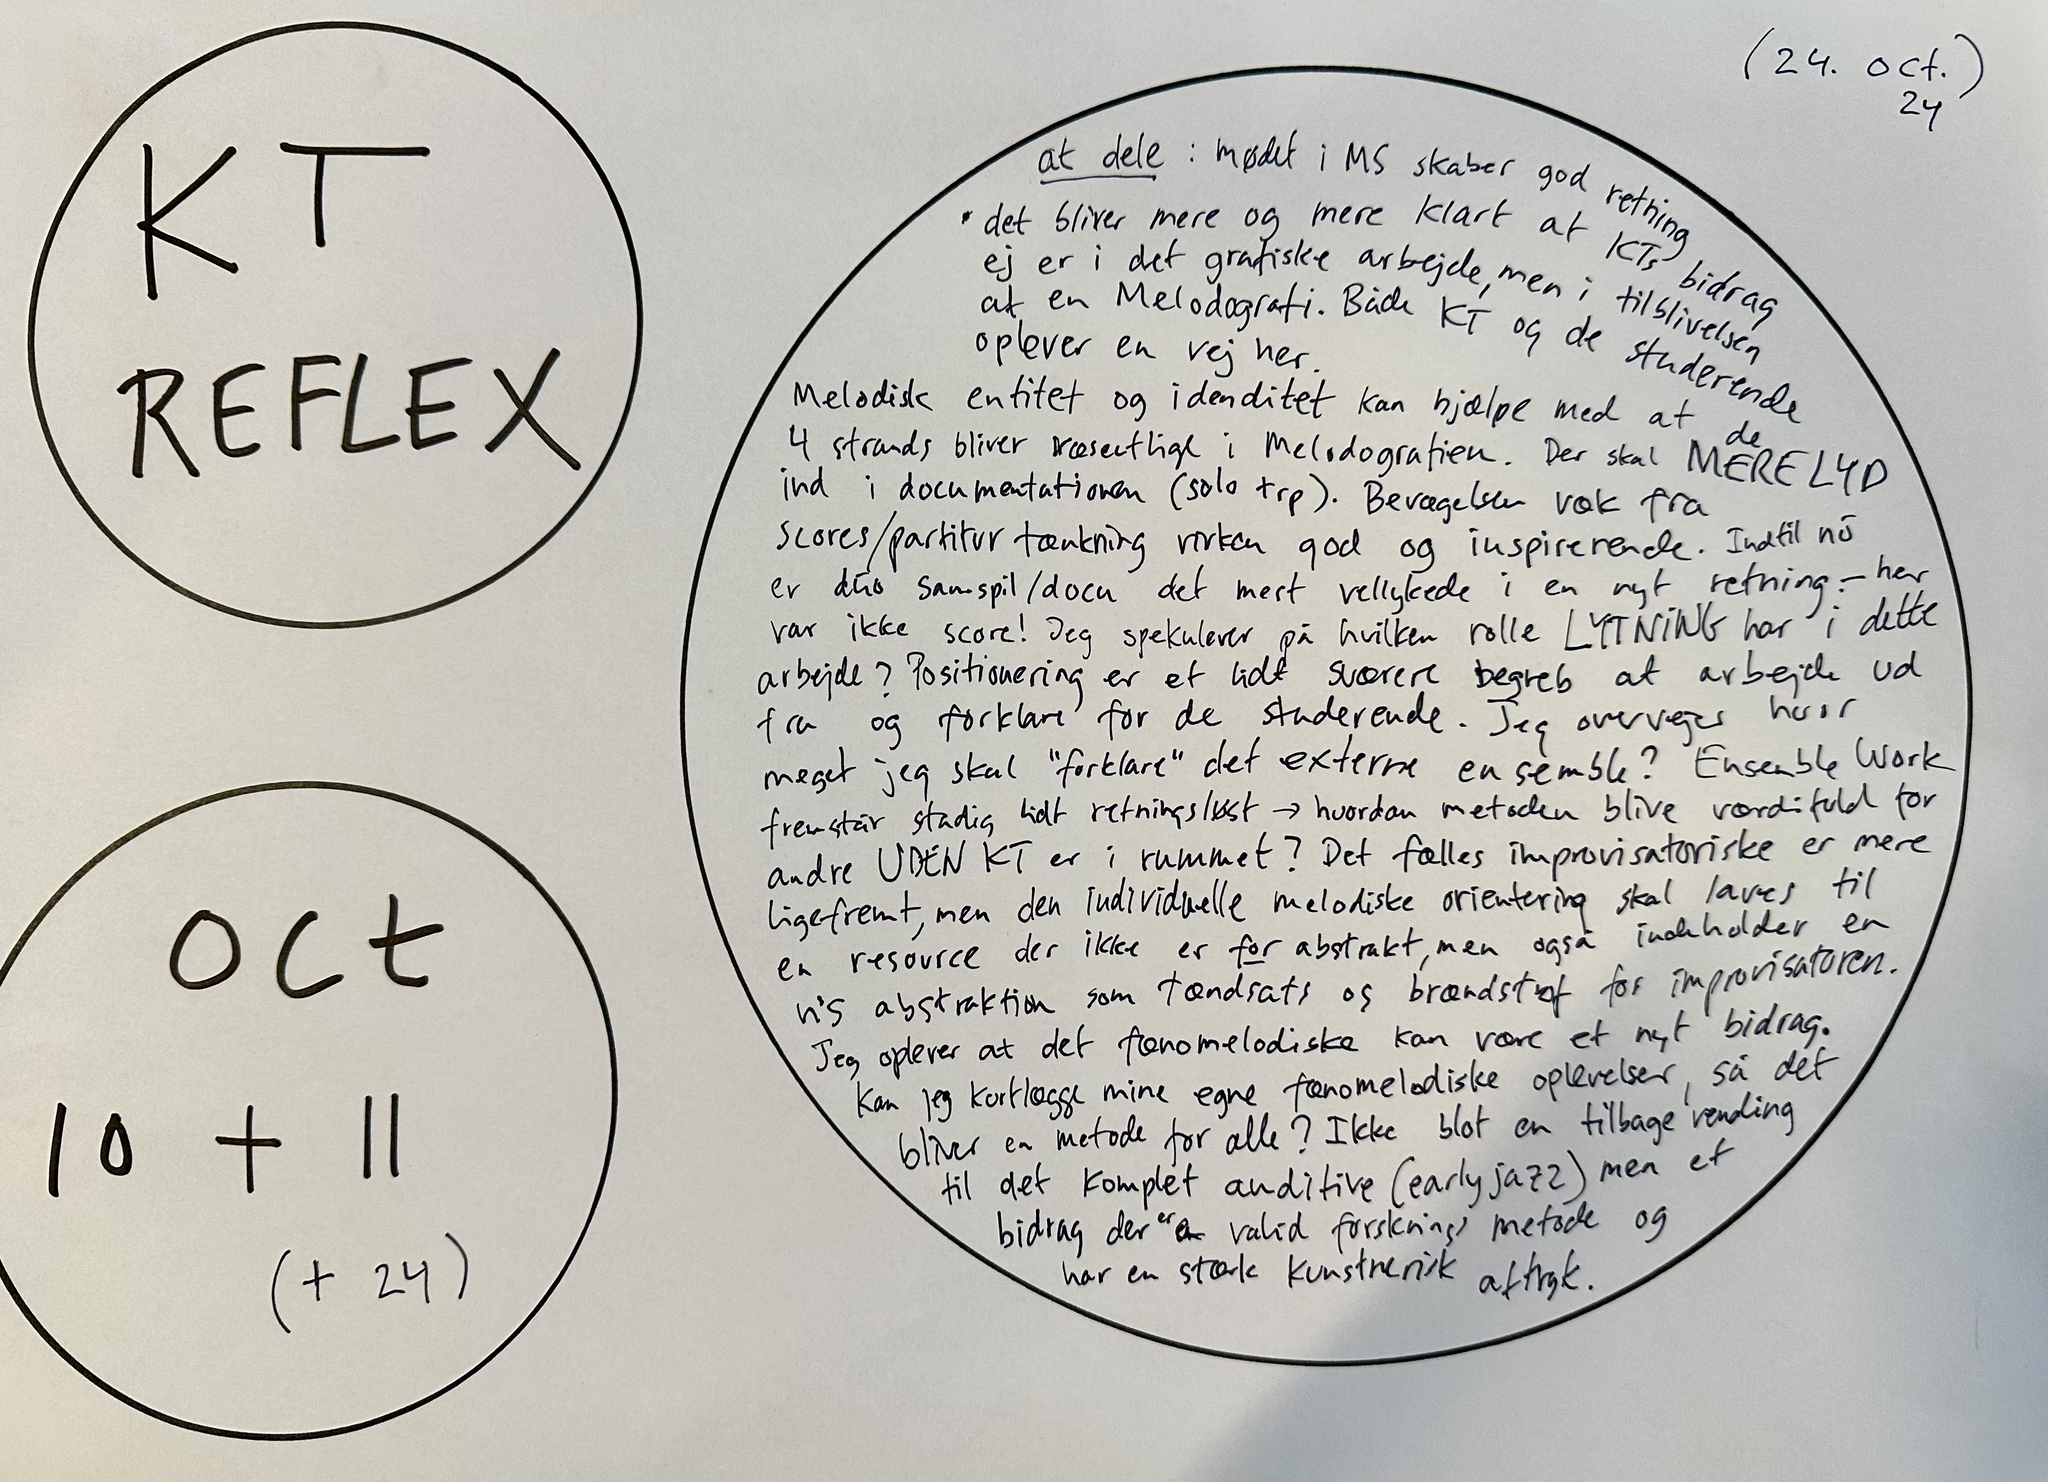 KT
REFLEX
oct
10 + 11
(+ 24)
(24. oct.)
24
at dele : mødet i MS skaber god retning
• det bliver mere og mere klart at KTs bidrag
ej er i det grafiske arbejde, men i tilblivelsen
at en Melodografi. Både KT og de studerende
oplever en vej her.
Melodisk entitet og idenditet kan hjælpe med at de
4 strands bliver væsentlige i Melodografien. Der skal MERE LYD
ind i documentationen (solo trp). Bevægelsen væk fra
scores/partitur tænkning virker god og inspirerende. Indtil nu
er duo samspil/docu det mest vellykede i en nyt retning – her
var ikke score! Jeg spekulerer på hvilken rolle LYTNING har i dette
arbejde? Positionering er et lidt sværere begreb at arbejde ud
fra og forklare for de studerende. Jeg overvejer hvor
meget jeg skal "forklare" det externe ensemble? Ensemble Work
fremstår stadig lidt retningsløst → hvordan metoden blive værdifuld for
andre UDEN KT er i rummet? Det fælles improvisatoriske er mere
ligefremt, men den individuelle melodiske orientering skal laves til
en resource der ikke er for abstrakt, men også indeholder en
vis abstraktion som tændsats og brændstof for improvisatoren.
Jeg oplever at det fænomelodiske kan være et nyt bidrag.
Kan jeg kortlægge mine egne fænomelodiske oplevelser, så det
bliver en metode for alle? Ikke blot en tilbage vending
til det komplet auditive (early jazz) men et
bidrag der er valid forsknings metode og
har en stærk kunstnerisk aftryk.